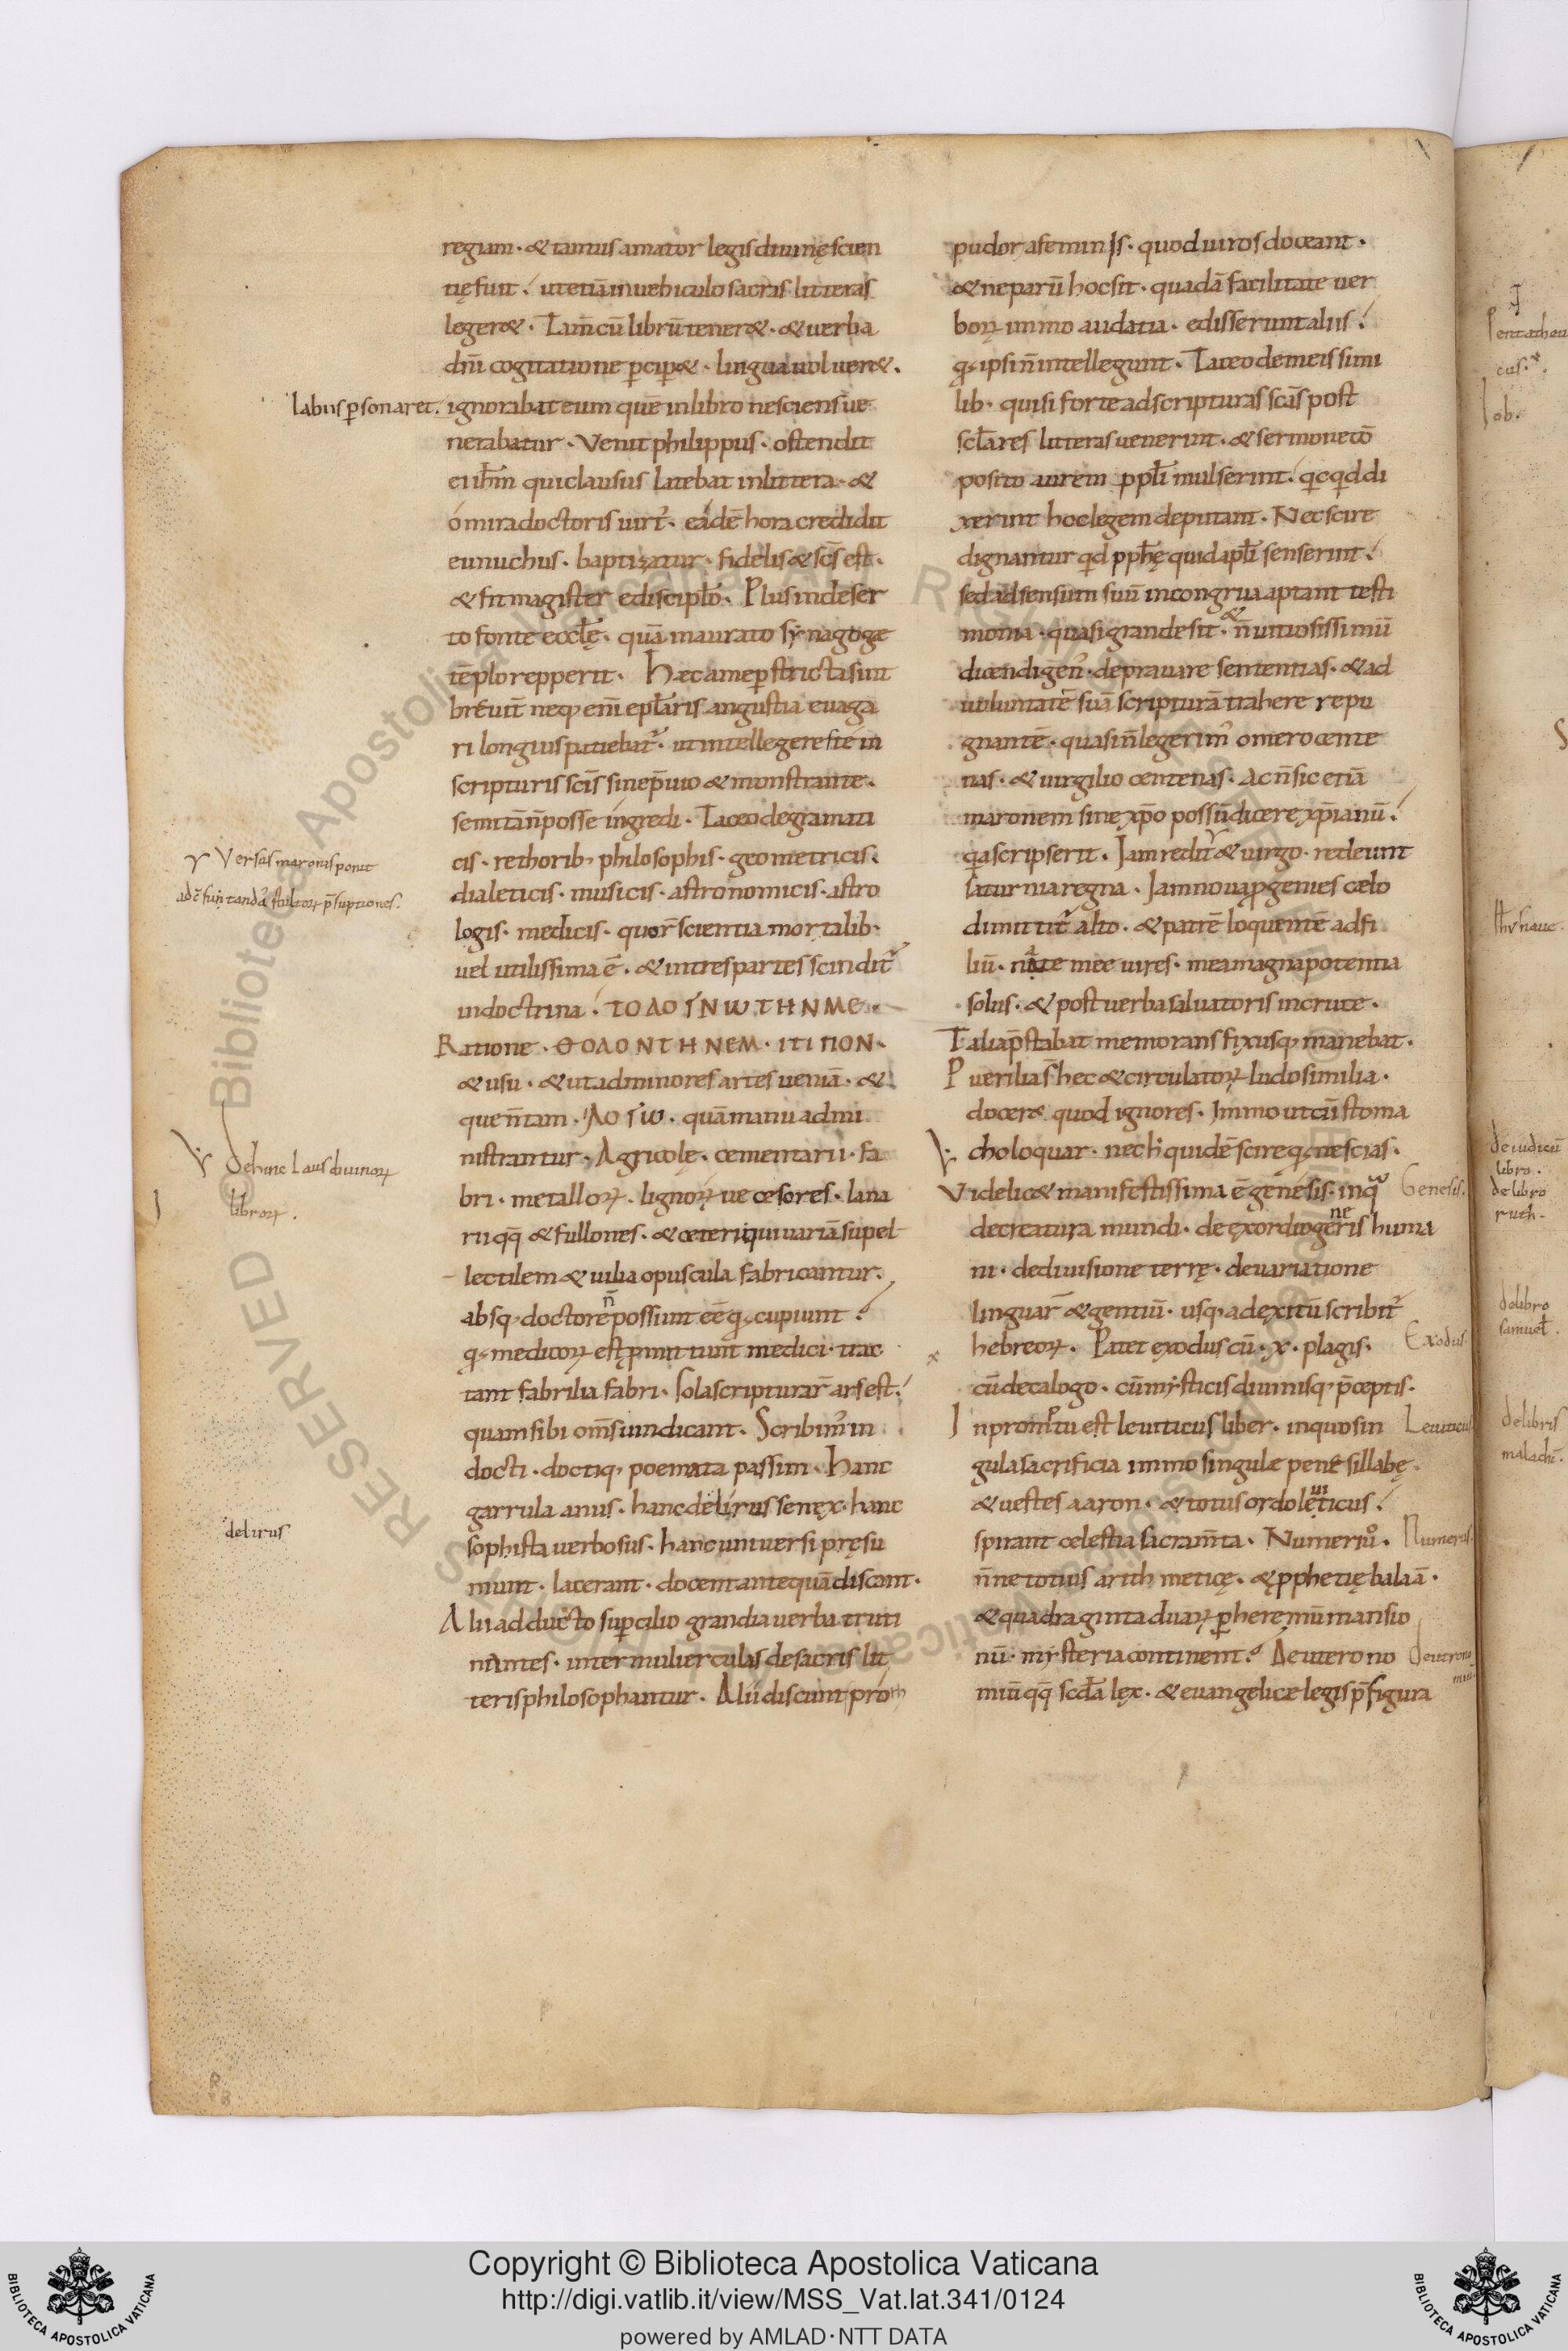 regiam· & tantus amator legis diuinę scien
tię fuit! ut etiā in uehiculo sacras litteras
leger&· Tam̄ cū librū tener&· & uerba
dn̄i cogitatione p̄cip&· lingua uoluer&·
labiis p̄sonaret· ignorabat eum quē in libro nesciens ue
nerabatur· Venit philippus· ostendit
ei ih̄m qui clausus latebat in littera· &
ó mira doctoris uirt᷒· eadē hora credidit
eunuchus· baptizatur· fidelis & sc̄s est·
& fit magister e discipl̄o· Plus in deser
to fonte eccl̄ę· quā in aurato synagogæ
tēplo repperit· Hæc a me p̄stricta sunt
breuit̄ neq; eni᷒ epl̄aris angustia euaga
ri longius patiebat᷒· ut intellegeres te in
scripturis sc̄is sine p̄uio & monstrante·
semitā n̄ posse ingredi· Taceo de gramati
cis· rethorib; philosophis· geometricis·
dialeticis· musicis· astronomicis· astro
logis· medicis· quor̄ scientia mortalib·
uel utilissima ē· & in tres partes scindit᷒
in doctrina! ΤΟ ΔΟΓΝ Ѡ ΤΗΝ ΜΕ·
Ratione· ΘΟΛΟΝ ΤΗΝ ΕΜ·ΙΤΙΠΟΝ·
& usu· & ut ad minores artes ueniā· &
que n̄ tam· ΛΟΓѠ· quā manu admi
nistrantur· Agricolę· cementarii· fa
bri· metalloꝝ· lignoꝝ ue cesores· lana
rii qq̄ & fullones· & ceteri qui uariā supel
lectilem & uilia opuscula fabricantur·
absq; doctore n̄ possunt eē qđ cupiunt!
qđ medicoꝝ est pmittunt medici· trac
tant fabrilia fabri· Sola scripturar̄ ars est!
quam sibi om̄s uindicant· Scribim᷒ in
docti· doctiq; poemata passim· Hanc
garrula anus· hanc delirus senex· hanc
sophista uerbosus· hanc uniuersi pręsu
munt· lacerant· docent antequā discant·
Alii adducto sup̄cilio grandia uerba truti
nantes· inter mulierculas de sacris lit
teris philosophantur· Alii discunt proh
Versus maronis ponit
Dehinc Laus diuinoꝝ
libroꝝ·
delirus
pudor a feminis· quod uiros doceant·
& ne parū hoc sit· quadā facilitate uer
boꝝ immo audatia· edisserunt aliis!
qđ ipsi n̄ intellegunt· Taceo de meis simi
lib· qui si forte ad scripturas sc̄as post
scl̄ares litteras uenerint· & sermone cō
posito aurem ppl̄i mulserint! qcqd di
xerint hoc legem dei putant· Nec scire
dignantur qd pph̄ę quid apl̄i senserint!
sed ad sensum suū incongrua aptant testi
monia· quasi grande sit· & n̄ uitiosissimū
dicendi gen᷒· deprauare sententias· & ad
uoluntatē suā scripturā trahere repu
gnantē· quasi n̄ legerim᷒ omerocente
nas· & uirgilio centenas· ac n̄ sic etiā
maronem sine xp̄o possū dicere xp̄ianū!
qa scripserit· Iam redit & uirgo· redeunt
saturnia regna· Iam noua pgenies cælo
dimittit᷒ alto· & patrē loquentē ad fi
liū· nate mee uires· mea magna potentia
solus· & post uerba saluatoris in crute·
Talia p̄stabat memorans fixusq; manebat·
Puerilia s̄ hec & circulatoꝝ ludo similia·
docere quod ignores· Immo ut cū stoma
cho loquar· nec h quidē scire qđ nescias·
Videlic& manifestissima ē genesis· in qua
de creatura mundi· de exordio generis huma
ni· de diuisione terrę· de uariatione
linguar̄ & gentiū· usq; ad exitū scribit᷒
hebreoꝝ· Patet exodus cū· x· plagis·
cū decalogo· cū mysticis diuinisq; p̄ceptis·
In promptu est leuiticus liber· in quo sin
gula sacrificia immo singulæ penę sillabę·
& uestes aaron· & totus ordo leuiticus!
spirant celestia sacram̄ta· Numeri uo·
n̄ne totius arithmeticę· & pphetię balaā·
& quadraginta duaꝝ p heremū mansio
nū· mysteria continent! Deuterono
miū qq̄ sc̄da lex· & euangelicæ legis p̄figura
Genesis·
Exodus·
Leuiticus
Numerus·
Deutrono
miū·
Pentatheu
cus·
Iob·
de iudicū
libro·
de libro
ruth·
de libro
samuel·
de libris
malachi·
RESERVED © Biblioteca Apostolica Vaticana
Copyright © Biblioteca Apostolica Vaticana
http://digi.vatlib.it/view/MSS_Vat.lat.341/0124
powered by AMLAD·NTT DATA
BIBLIOTECA APOSTOLICA VATICANA
BIBLIOTECA APOSTOLICA VATICANA